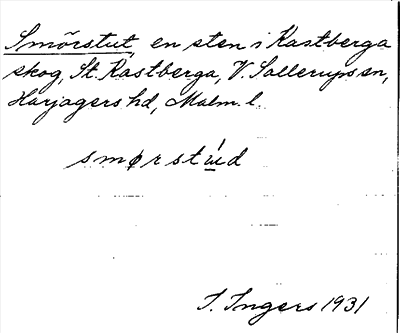 Smörstut, en sten i Kastberga
skog, St. Kastberga, V. Sallerups sn,
Harjagers hd, Malm. l.
smørstúd
I. Ingers 1931